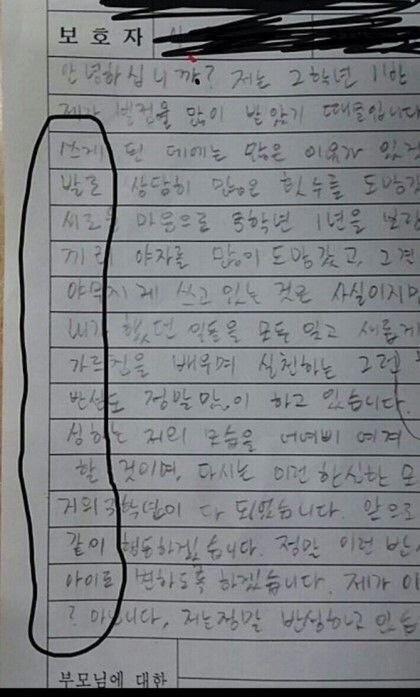 보호자
안녕하십니까? 저는 2학년 1반
제가 벌점을 많이 받았기 때문입니다
쓰게 된 데에는 많은 이유가 있겠
발로 상담히 많은 횟수를 도망갔
새로운 마음으로 3학년 1년을 보
끼리 야자를 많이 도망갔고, 그 전
야무지게 쓰고 있는 것은 사실이지만
내가 했던 일들을 모두 잊고 새롭게
가르침을 배우며 실천하는 그런
반성도 정말 많이 하고 있습니다
심하는 저의 모습을 너녀삐 여겨
할 것이며, 다시는 이런 한심한 모
거의 3학년이 다 되었습니다. 앞으로
같이 행동하겠습니다. 정말 이런 반
아이로 변하도록 하겠습니다. 제가 이
? 아닙니다, 저는 정말 반성하고 있습
부모님에 대한